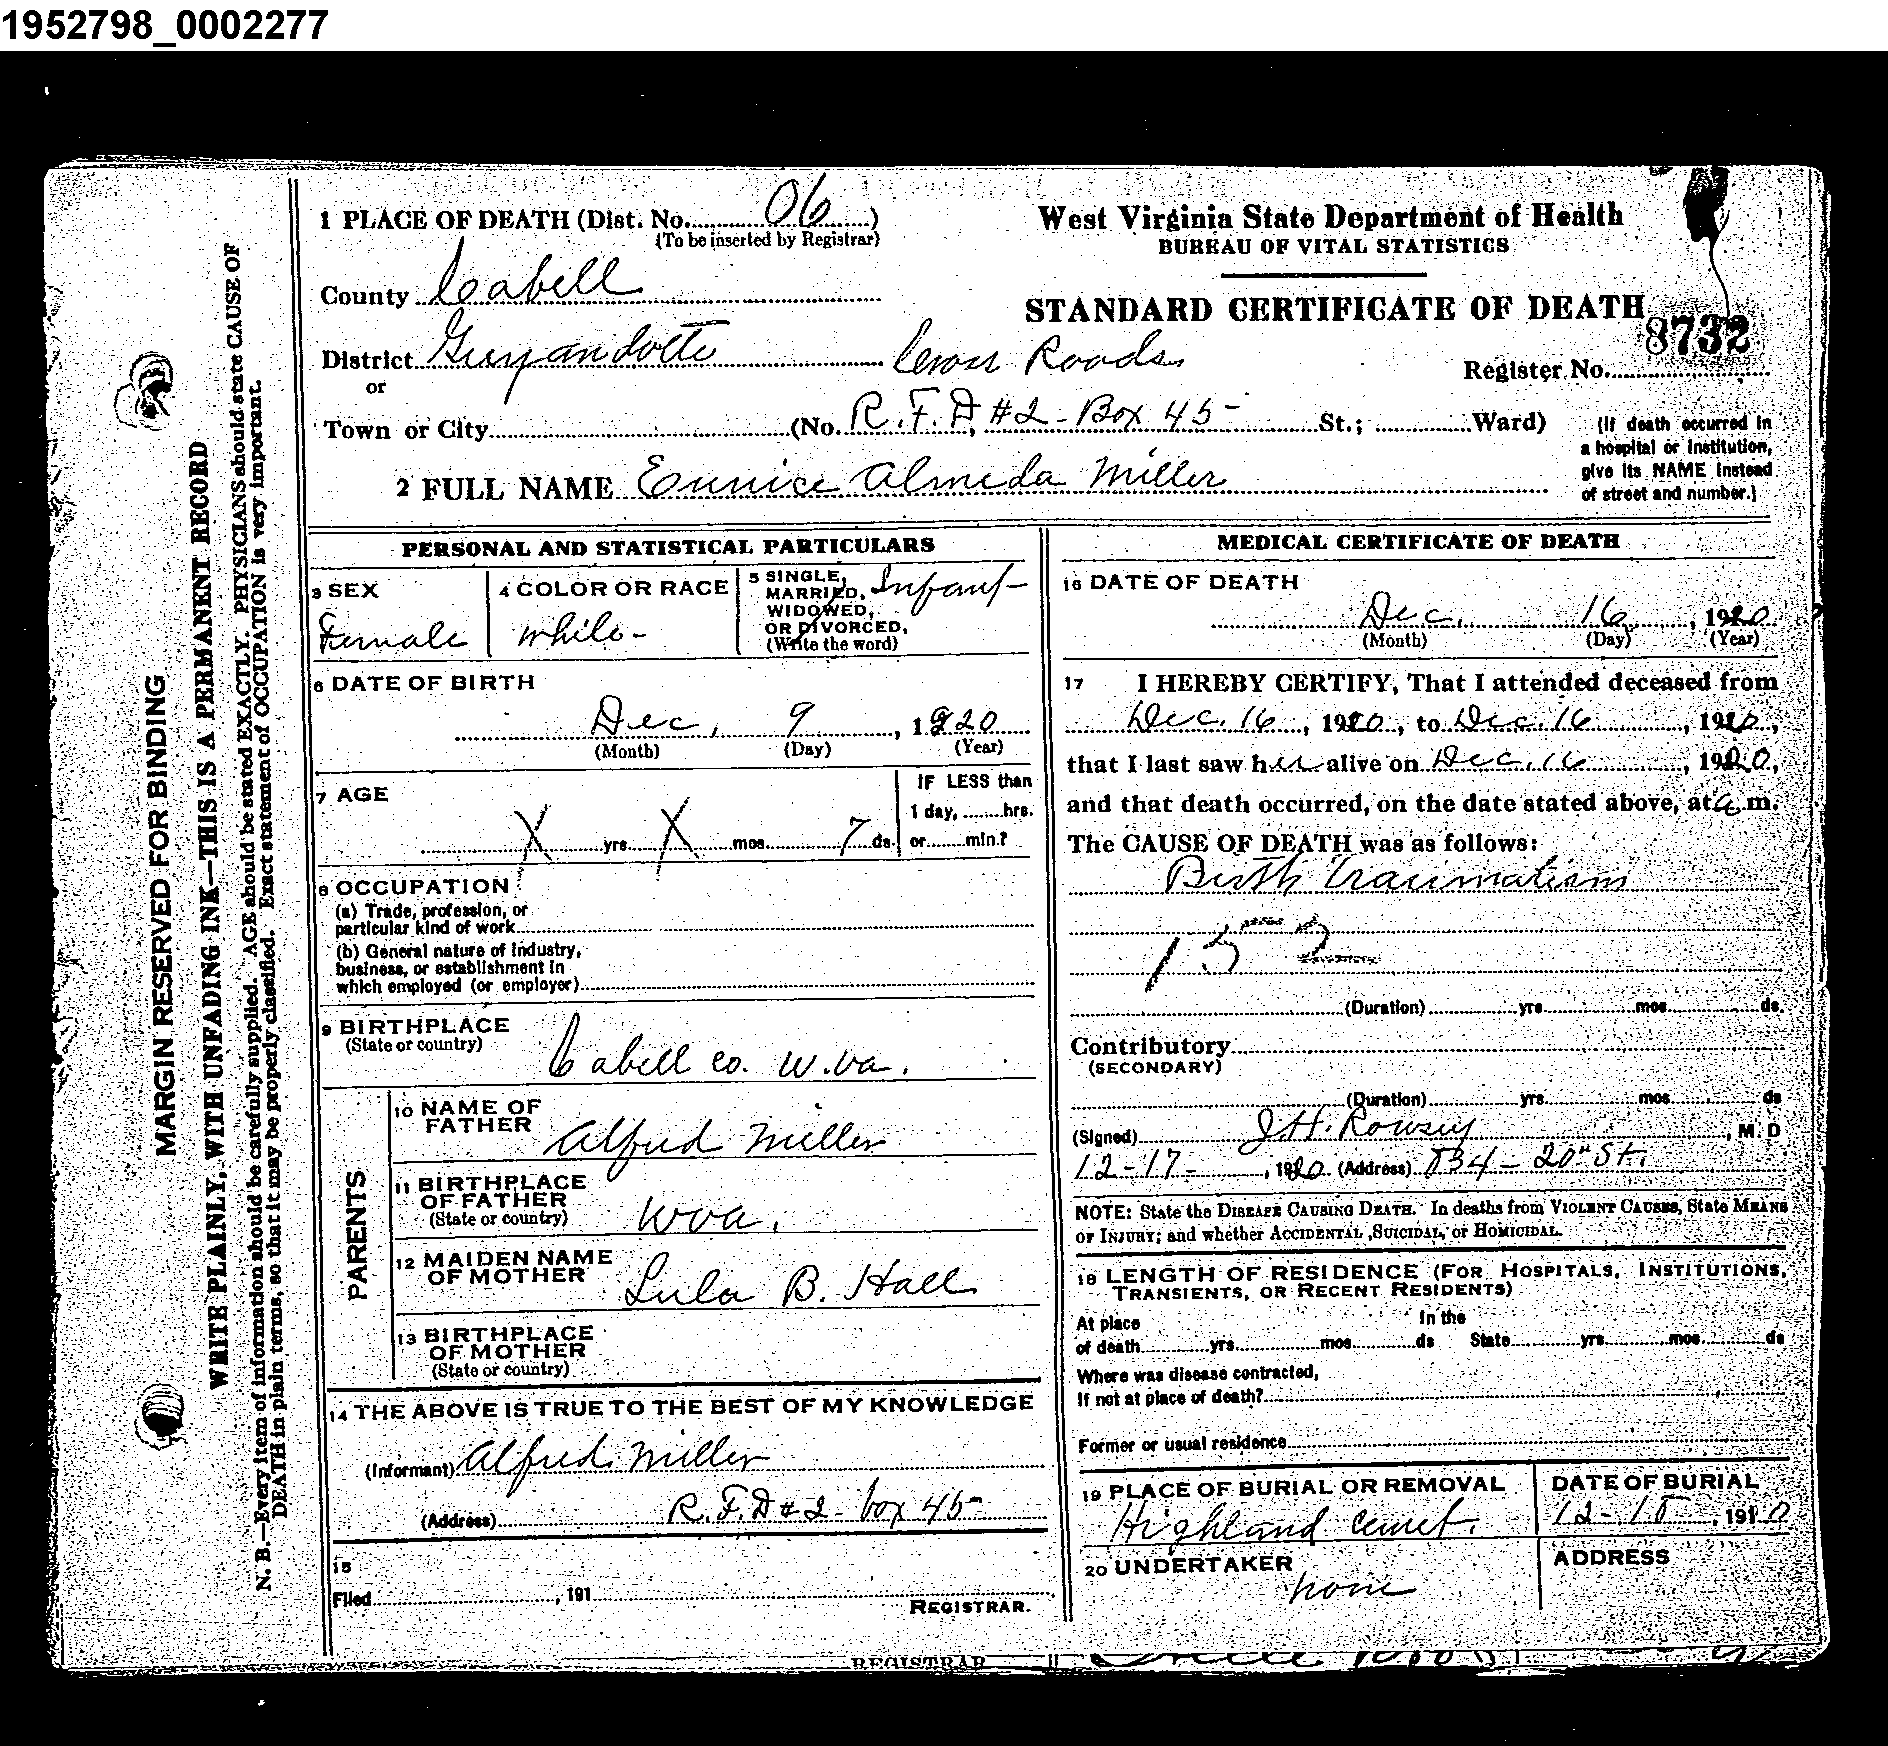 1952798_0002277
1 PLACE OF DEATH (Dist. No. 06 )
(To be inserted by Registrar)
County Cabell
District Guyandotte Cross Roads
or
Town or City (No. R.F.D #2 - Box 45 St.; Ward)
2 FULL NAME Eunice Almeda Miller
West Virginia State Department of Health
BUREAU OF VITAL STATISTICS
STANDARD CERTIFICATE OF DEATH
8732
Register No.
(If death occurred in
a hospital or institution,
give its NAME instead
of street and number.)
MARGIN RESERVED FOR BINDING
WRITE PLAINLY, WITH UNFADING INK—THIS IS A PERMANENT RECORD
N. B.—Every item of information should be carefully supplied. AGE should be stated EXACTLY. PHYSICIANS should state CAUSE OF
DEATH in plain terms, so that it may be properly classified. Exact statement of OCCUPATION is very important.
PERSONAL AND STATISTICAL PARTICULARS
3 SEX
Female
4 COLOR OR RACE
White
5 SINGLE,
MARRIED,
WIDOWED,
OR DIVORCED,
(Write the word)
Infant
6 DATE OF BIRTH
Dec, 9, 1920
(Month) (Day) (Year)
7 AGE
X yrs X mos 7 ds
IF LESS than
1 day, hrs.
or min.?
8 OCCUPATION
(a) Trade, profession, or
particular kind of work
(b) General nature of industry,
business, or establishment in
which employed (or employer)
9 BIRTHPLACE
(State or country)
Cabell co. W.va.
PARENTS
10 NAME OF
FATHER
Alfred Miller
11 BIRTHPLACE
OF FATHER
(State or country)
Wva.
12 MAIDEN NAME
OF MOTHER
Lula B. Hall
13 BIRTHPLACE
OF MOTHER
(State or country)
14 THE ABOVE IS TRUE TO THE BEST OF MY KNOWLEDGE
(Informant) Alfred Miller
(Address) R.F.D #2 - box 45
15
Filed , 191
REGISTRAR.
MEDICAL CERTIFICATE OF DEATH
16 DATE OF DEATH
Dec. 16, 1920
(Month) (Day) (Year)
17 I HEREBY CERTIFY, That I attended deceased from
Dec. 16, 1920, to Dec. 16, 1920,
that I last saw her alive on Dec. 16, 1920,
and that death occurred, on the date stated above, at a m.
The CAUSE OF DEATH was as follows:
Birth Traumatism
152
(Duration) yrs mos ds.
Contributory
(SECONDARY)
(Duration) yrs mos ds
(Signed) J.H. Rowsey, M. D
12-17-, 1920 (Address) 834 - 20th St.
NOTE: State the DISEASE CAUSING DEATH. In deaths from VIOLENT CAUSES, State MEANS
OF INJURY; and whether ACCIDENTAL, SUICIDAL, or HOMICIDAL.
18 LENGTH OF RESIDENCE (FOR HOSPITALS, INSTITUTIONS,
TRANSIENTS, OR RECENT RESIDENTS)
At place In the
of death yrs mos ds State yrs mos ds
Where was disease contracted,
If not at place of death?
Former or usual residence
19 PLACE OF BURIAL OR REMOVAL
Highland Cemet.
DATE OF BURIAL
20 UNDERTAKER
none
ADDRESS
REGISTRAR